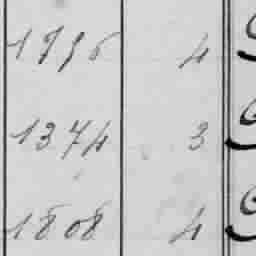 1956 4
1374 3
1808 4